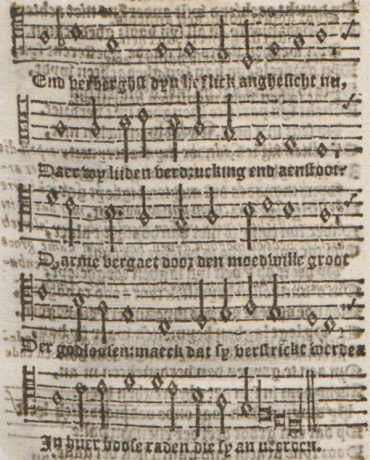 End verberghst dyn lieflick anghesicht nu,
Daer wy lijden verdrucking end aenstoot?
D'arme vergaet door den moedwille groot
Der godloosen: maeck dat sy verstrickt werden
In huer boose raden die sy an